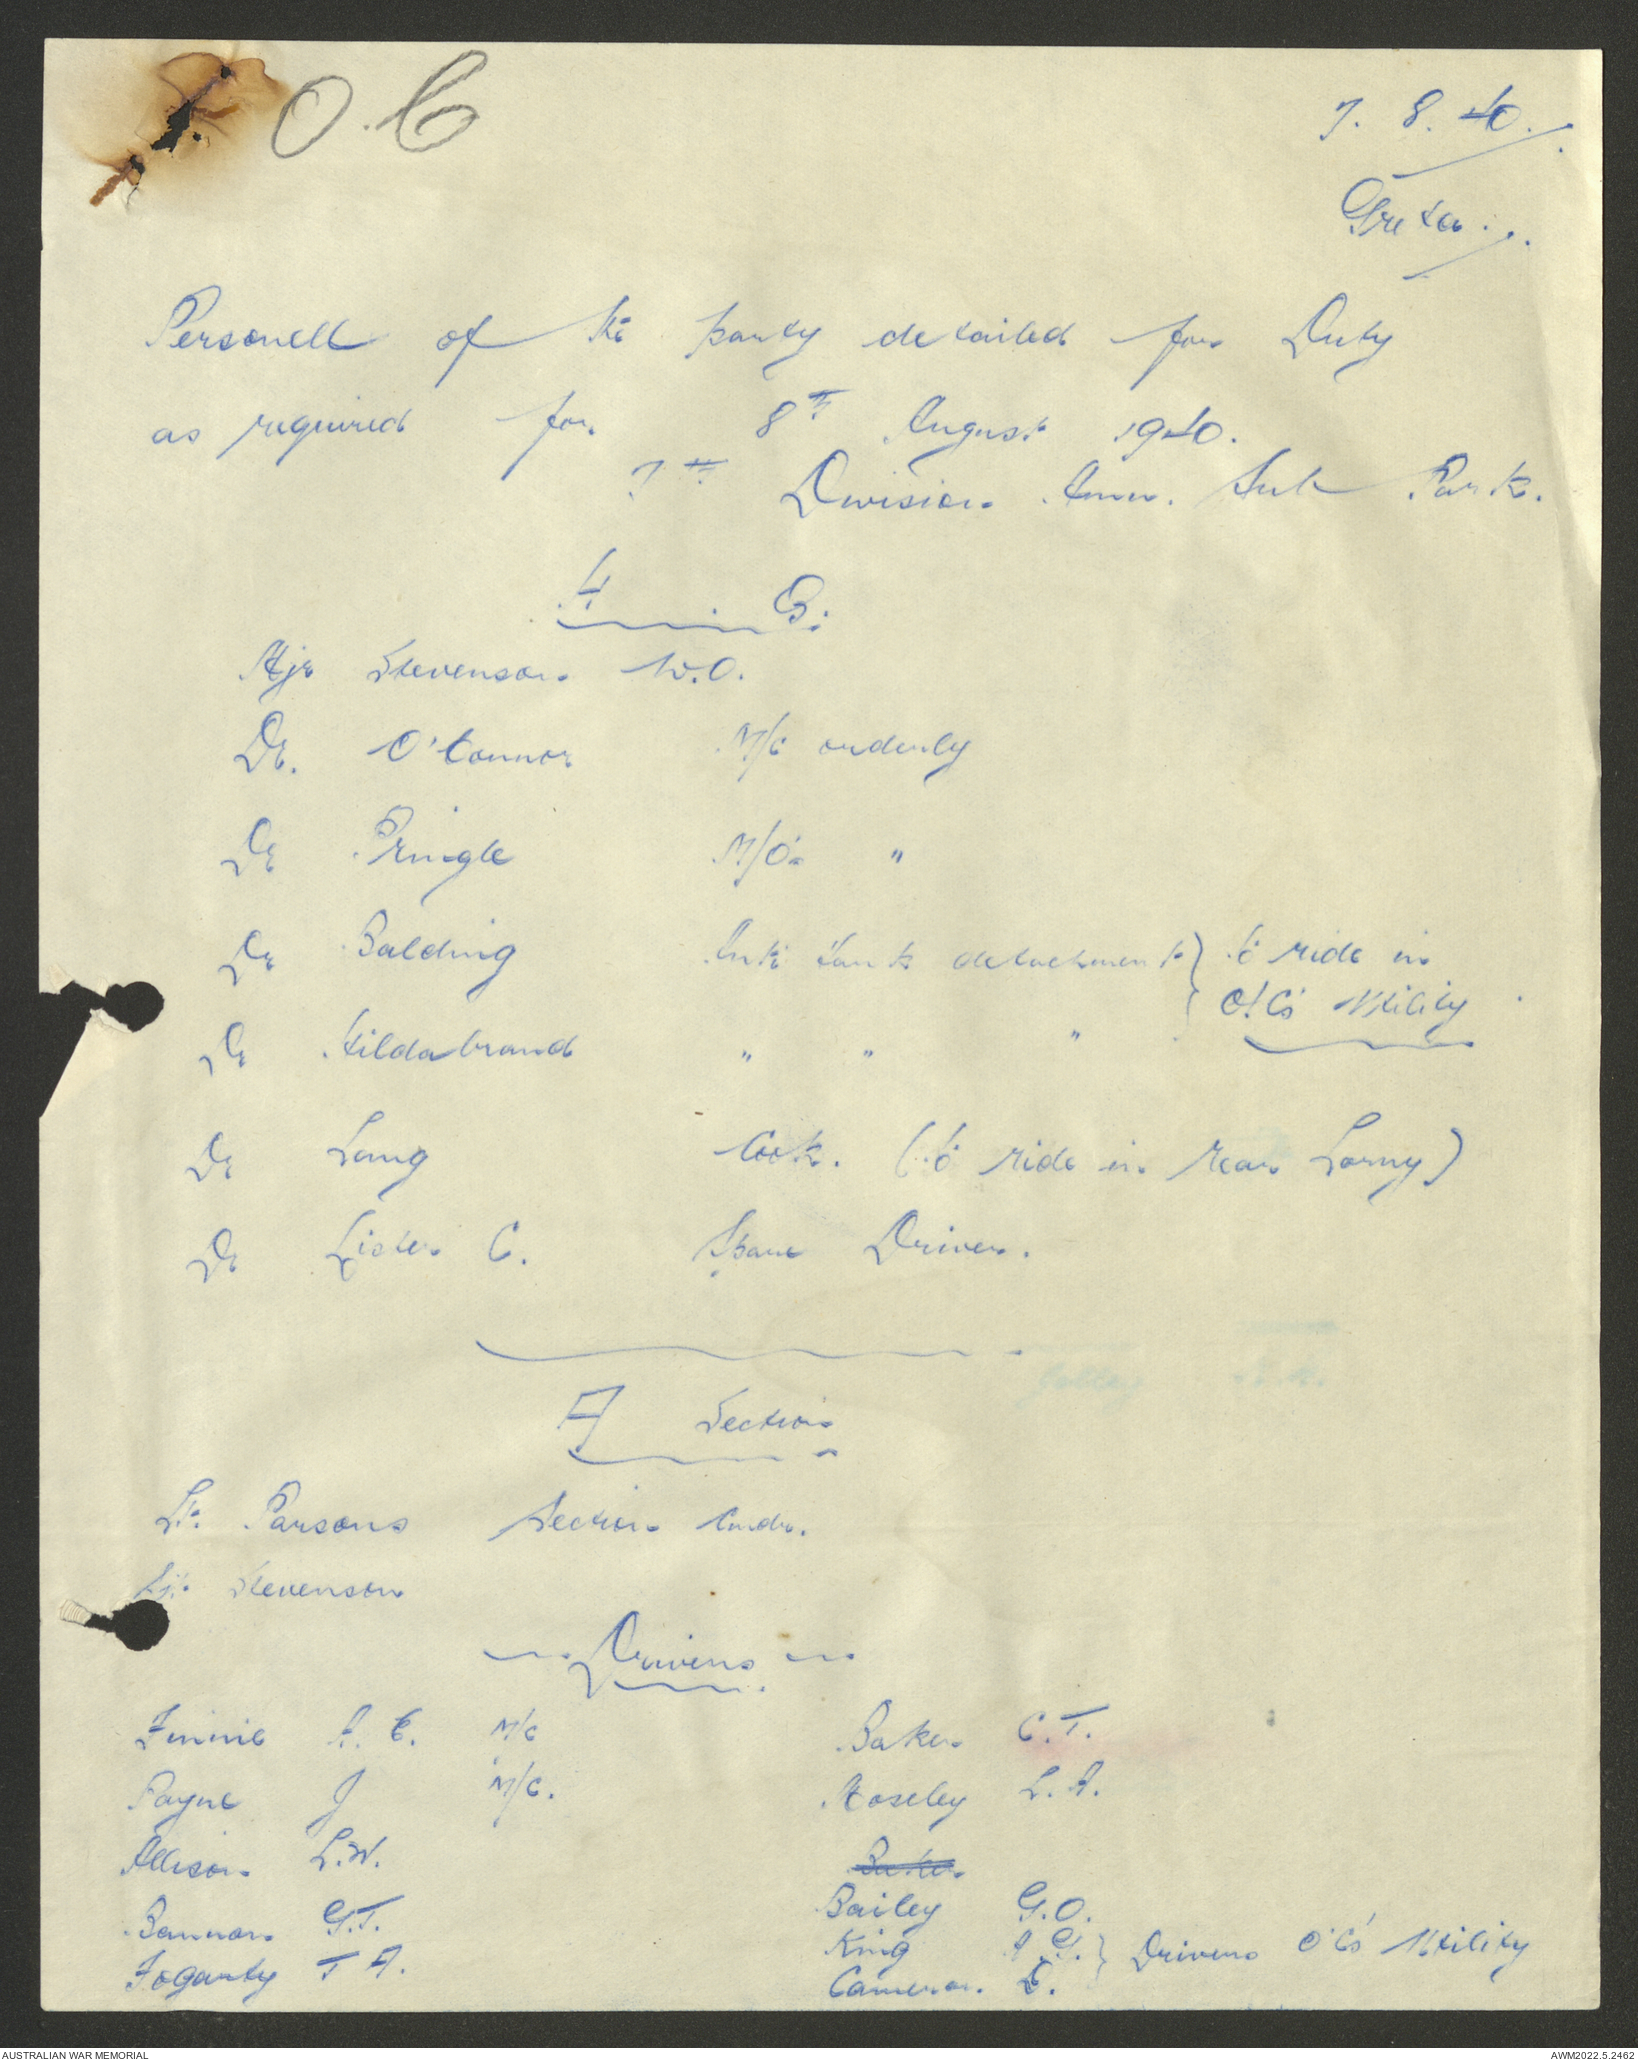 O.C
7. 8. 40.
Greta.
Personell of the party detailed for Duty
as required for 8th August 1940.
7th Division Amn. Sub Park.
H Q:
Stevenson W.O.
Dr. O'Connor M/C orderly
Dr Pringle M/C "
Dr Balding Anti Tank detachment } to ride in
O.C's Utility
Dr Hildabrand " " "
Dr Lang Cook. (to ride in rear Lorry)
Dr Lister C. Spare Driver.
A Section
Lt. Parsons Section Cmdr.
Stevenson
Drivers
Finnie A. C. M/C Baker C.T.
Payne J M/C. Hoseley L. A.
Allison L.W. Baker
Bannon G.T. Bailey G.O.
Fogarty T A. King A G. } Drivers O C's Utility
Cameron D.
AUSTRALIAN WAR MEMORIAL AWM2022.5.2462